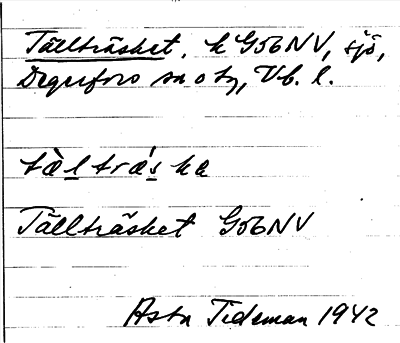 Tällträsket, k G56NV, sjö,
Degerfors sn o tg, Vb. l.
tὰl trás ka
Tällträsket G56NV
Asta Tideman 1942